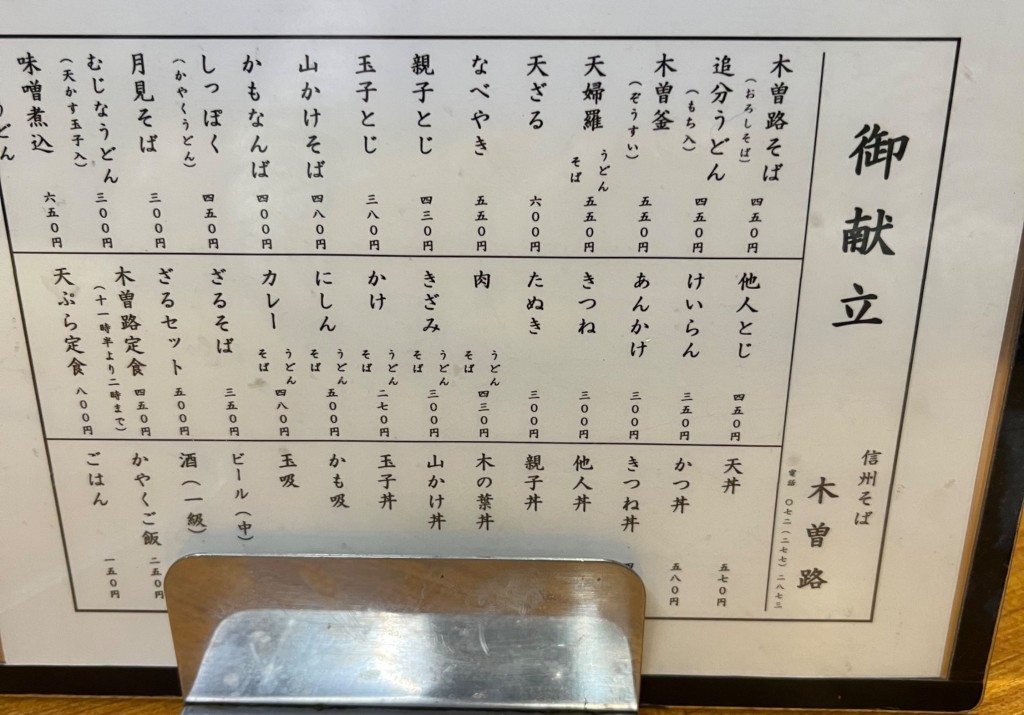 御献立
信州そば
木曽路
電話 〇七二(二七七)二八七三
木曽路そば
(おろしそば)
四五〇円
追分うどん
(もち入)
四五〇円
木曽釜
(ぞうすい)
五五〇円
天婦羅
うどん
そば
五五〇円
天ざる
六〇〇円
なべやき
五五〇円
親子とじ
四三〇円
玉子とじ
三八〇円
山かけそば
四八〇円
かもなんば
四〇〇円
しっぽく
(かやくうどん)
四五〇円
月見そば
三〇〇円
むじなうどん
(天かす玉子入)
三〇〇円
味噌煮込
うどん
六五〇円
他人とじ
四五〇円
けいらん
三五〇円
あんかけ
三〇〇円
きつね
三〇〇円
たぬき
三〇〇円
肉
うどん
そば
四三〇円
きざみ
うどん
そば
三〇〇円
かけ
うどん
そば
二七〇円
にしん
うどん
そば
五〇〇円
カレー
うどん
そば
四八〇円
ざるそば
三五〇円
ざるセット
五〇〇円
木曽路定食
(十一時半より二時まで)
四五〇円
天ぷら定食
八〇〇円
天丼
五七〇円
かつ丼
五八〇円
きつね丼
他人丼
親子丼
木の葉丼
山かけ丼
玉子丼
かも吸
玉吸
ビール(中)
酒(一級)
かやくご飯
二五〇円
ごはん
一五〇円